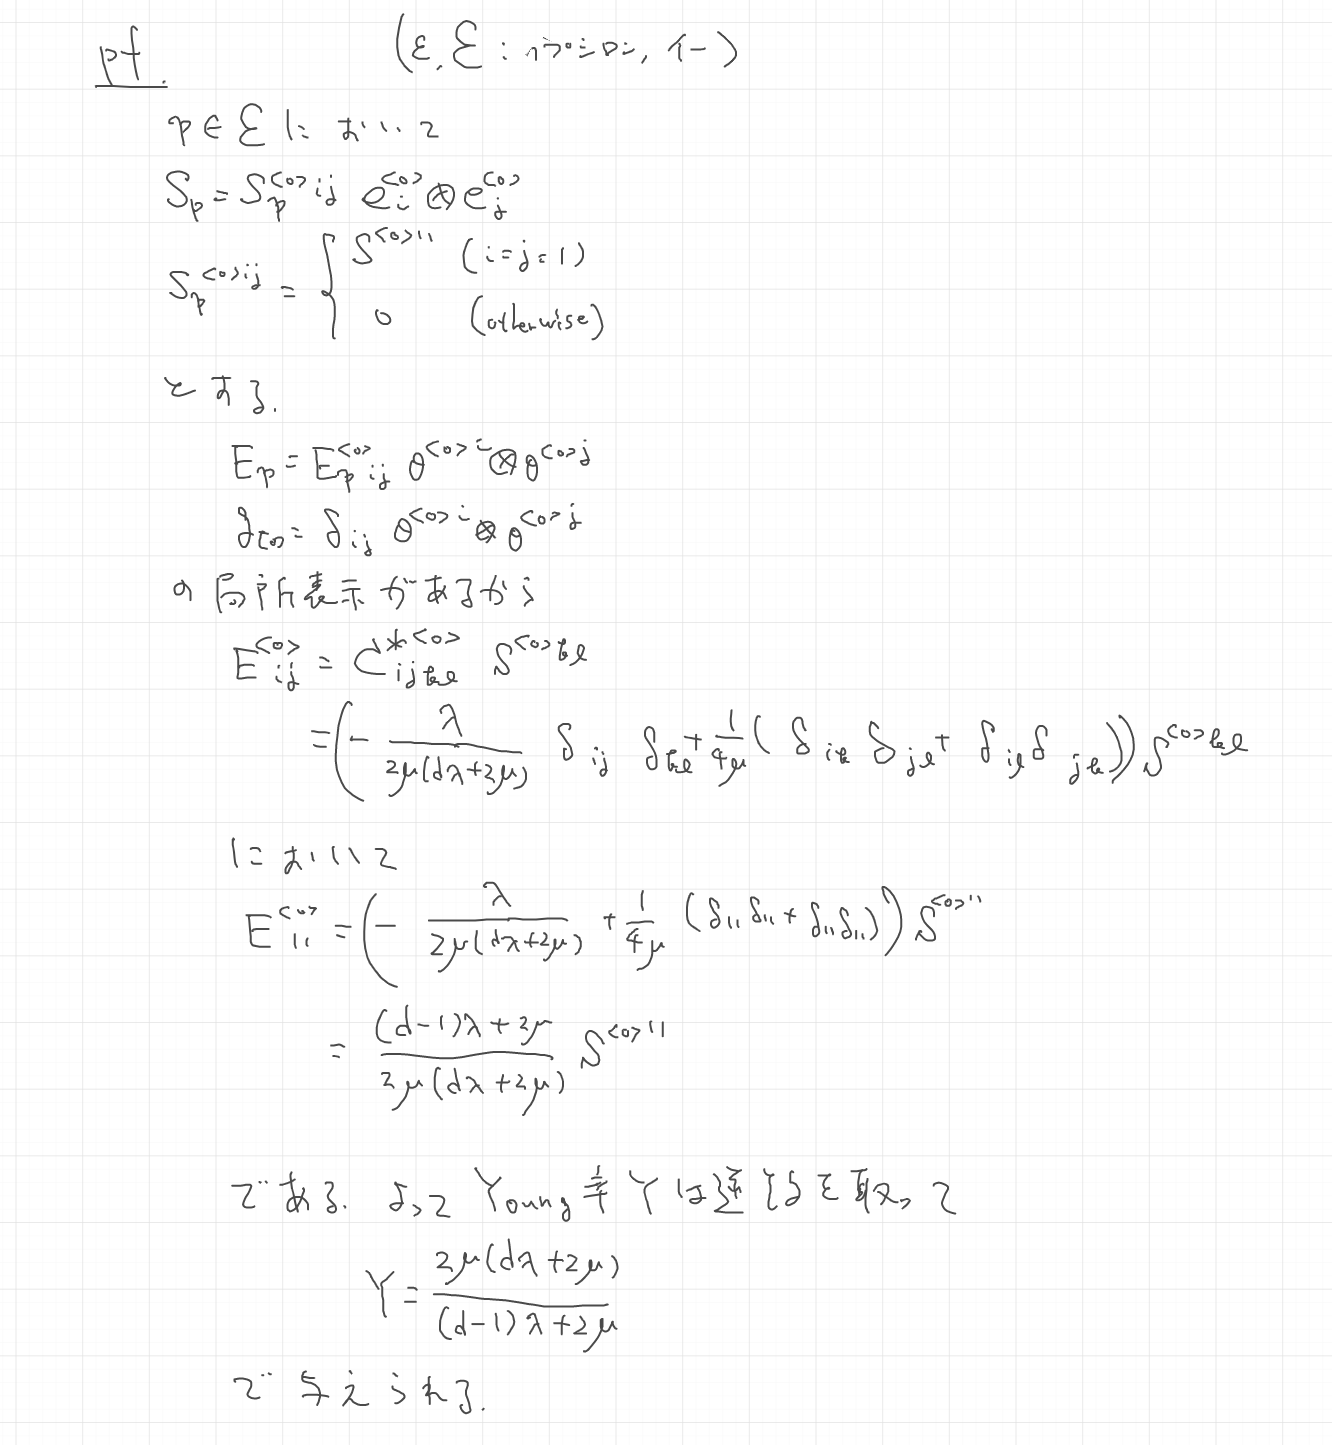 pf. (ε, Ɛ : イプシロン, イー)
p ∈ Ɛ において
S_p = S_p^{<0>ij} e_i^{<0>} ⊗ e_j^{<0>}
S_p^{<0>ij} = { S^{<0>11} (i=j=1)
0 (otherwise)
とする.
E_p = E_p^{<0>}_{ij} θ^{<0>i} ⊗ θ^{<0>j}
g_{<0>} = δ_{ij} θ^{<0>i} ⊗ θ^{<0>j}
の局所表示があるから
E^{<0>}_{ij} = C^{*<0>}_{ijkl} S^{<0>kl}
= (- λ / 2μ(dλ+2μ) δ_{ij} δ_{kl} + 1/4μ (δ_{ik} δ_{jl} + δ_{il} δ_{jk})) S^{<0>kl}
において
E^{<0>}_{11} = (- λ / 2μ(dλ+2μ) + 1/4μ (δ_{11} δ_{11} + δ_{11} δ_{11})) S^{<0>11}
= (d-1)λ+2μ / 2μ(dλ+2μ) S^{<0>11}
である. よって Young率 Y は逆を取って
Y = 2μ(dλ+2μ) / (d-1)λ+2μ
で与えられる.